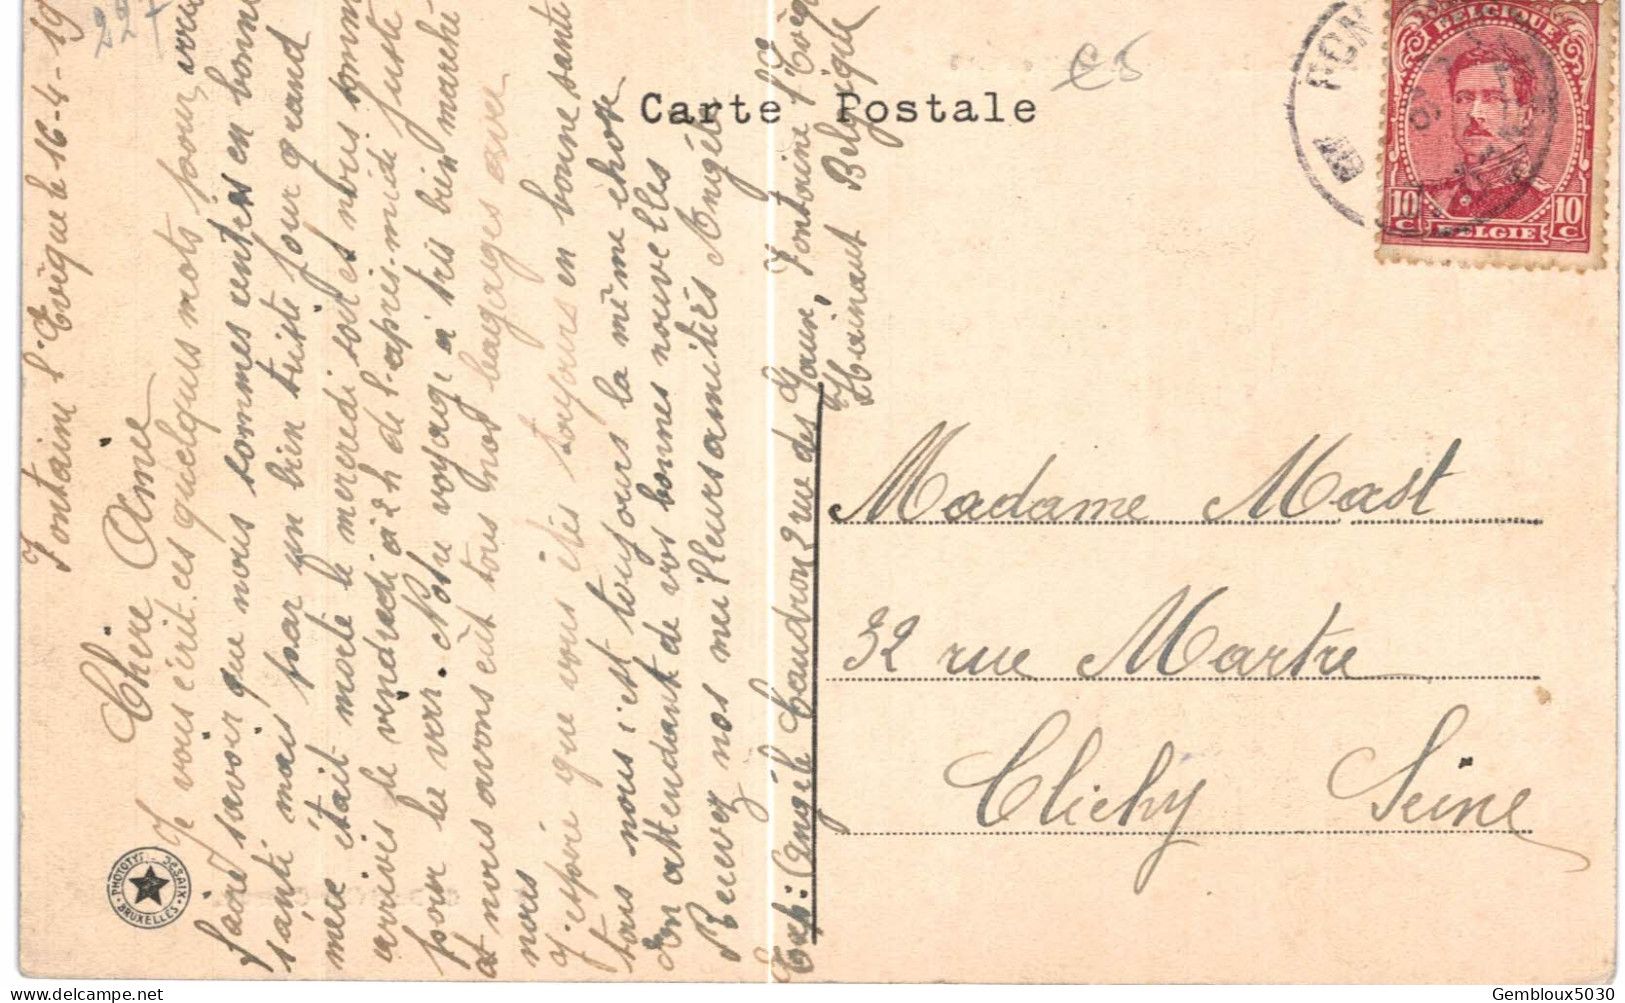 227
Carte Postale
Fontaine l'Evêque le 16-4-19
Chère Aimée
Je vous écrit ces quelques mots pour, vous
faire savoir que nous sommes rentrés en bonne
santé mais par un bien triste jour quand
mere était morte le mercredi soir et nous somm
arrivés le vendredi à 2 h de l'après-midi juste
pour la voir. Notre voyage a très bien marché
et nous avons eut tous nos bagages avec
nous
J'espère que vous étés toujours en bonne santé
tous nous c'est toujours la même chose
En attendant de vos bonnes nouvelles
Recevez nos meilleurs amitiés Angèle
Exp: Angèle Caudron 2 rue des Fontaine l'Evêq
Hainaut Belgique
BELGIQUE
10 C
BELGIE
10 C
Madame Mast
32 rue Martre
Clichy Seine
PHOTOTYPIE DESAIX
BRUXELLES
Gembloux5030